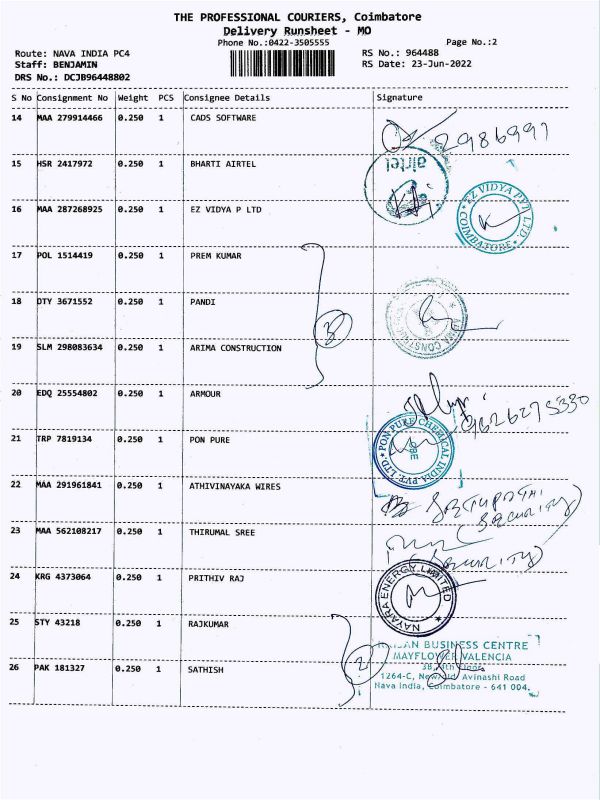 THE PROFESSIONAL COURIERS, Coimbatore
Delivery Runsheet - MO
Phone No.:0422-3505555
Page No.:2
Route: NAVA INDIA PC4
RS No.: 964488
Staff: BENJAMIN
RS Date: 23-Jun-2022
DRS No.: DCJB96448802
S No Consignment No Weight PCS Consignee Details Signature
14 MAA 279914466 0.250 1 CADS SOFTWARE
2986991
15 HSR 2417972 0.250 1 BHARTI AIRTEL
airtel
16 MAA 287268925 0.250 1 EZ VIDYA P LTD
EZ VIDYA PVT LTD. COIMBATORE
17 POL 1514419 0.250 1 PREM KUMAR
18 DTY 3671552 0.250 1 PANDI
3
19 SLM 298083634 0.250 1 ARIMA CONSTRUCTION
20 EDQ 25554802 0.250 1 ARMOUR
9626275330
21 TRP 7819134 0.250 1 PON PURE
PON PURE CHEMICAL INDIA PVT. LTD.
CBE
22 MAA 291961841 0.250 1 ATHIVINAYAKA WIRES
Security
23 MAA 562108217 0.250 1 THIRUMAL SREE
(Security)
24 KRG 4373064 0.250 1 PRITHIV RAJ
NAYARA ENERGY LIMITED
25 STY 43218 0.250 1 RAJKUMAR
BUSINESS CENTRE
MAYFLOWER VALENCIA
2
26 PAK 181327 0.250 1 SATHISH
1264-C, Avinashi Road
Nava India, Coimbatore - 641 004.